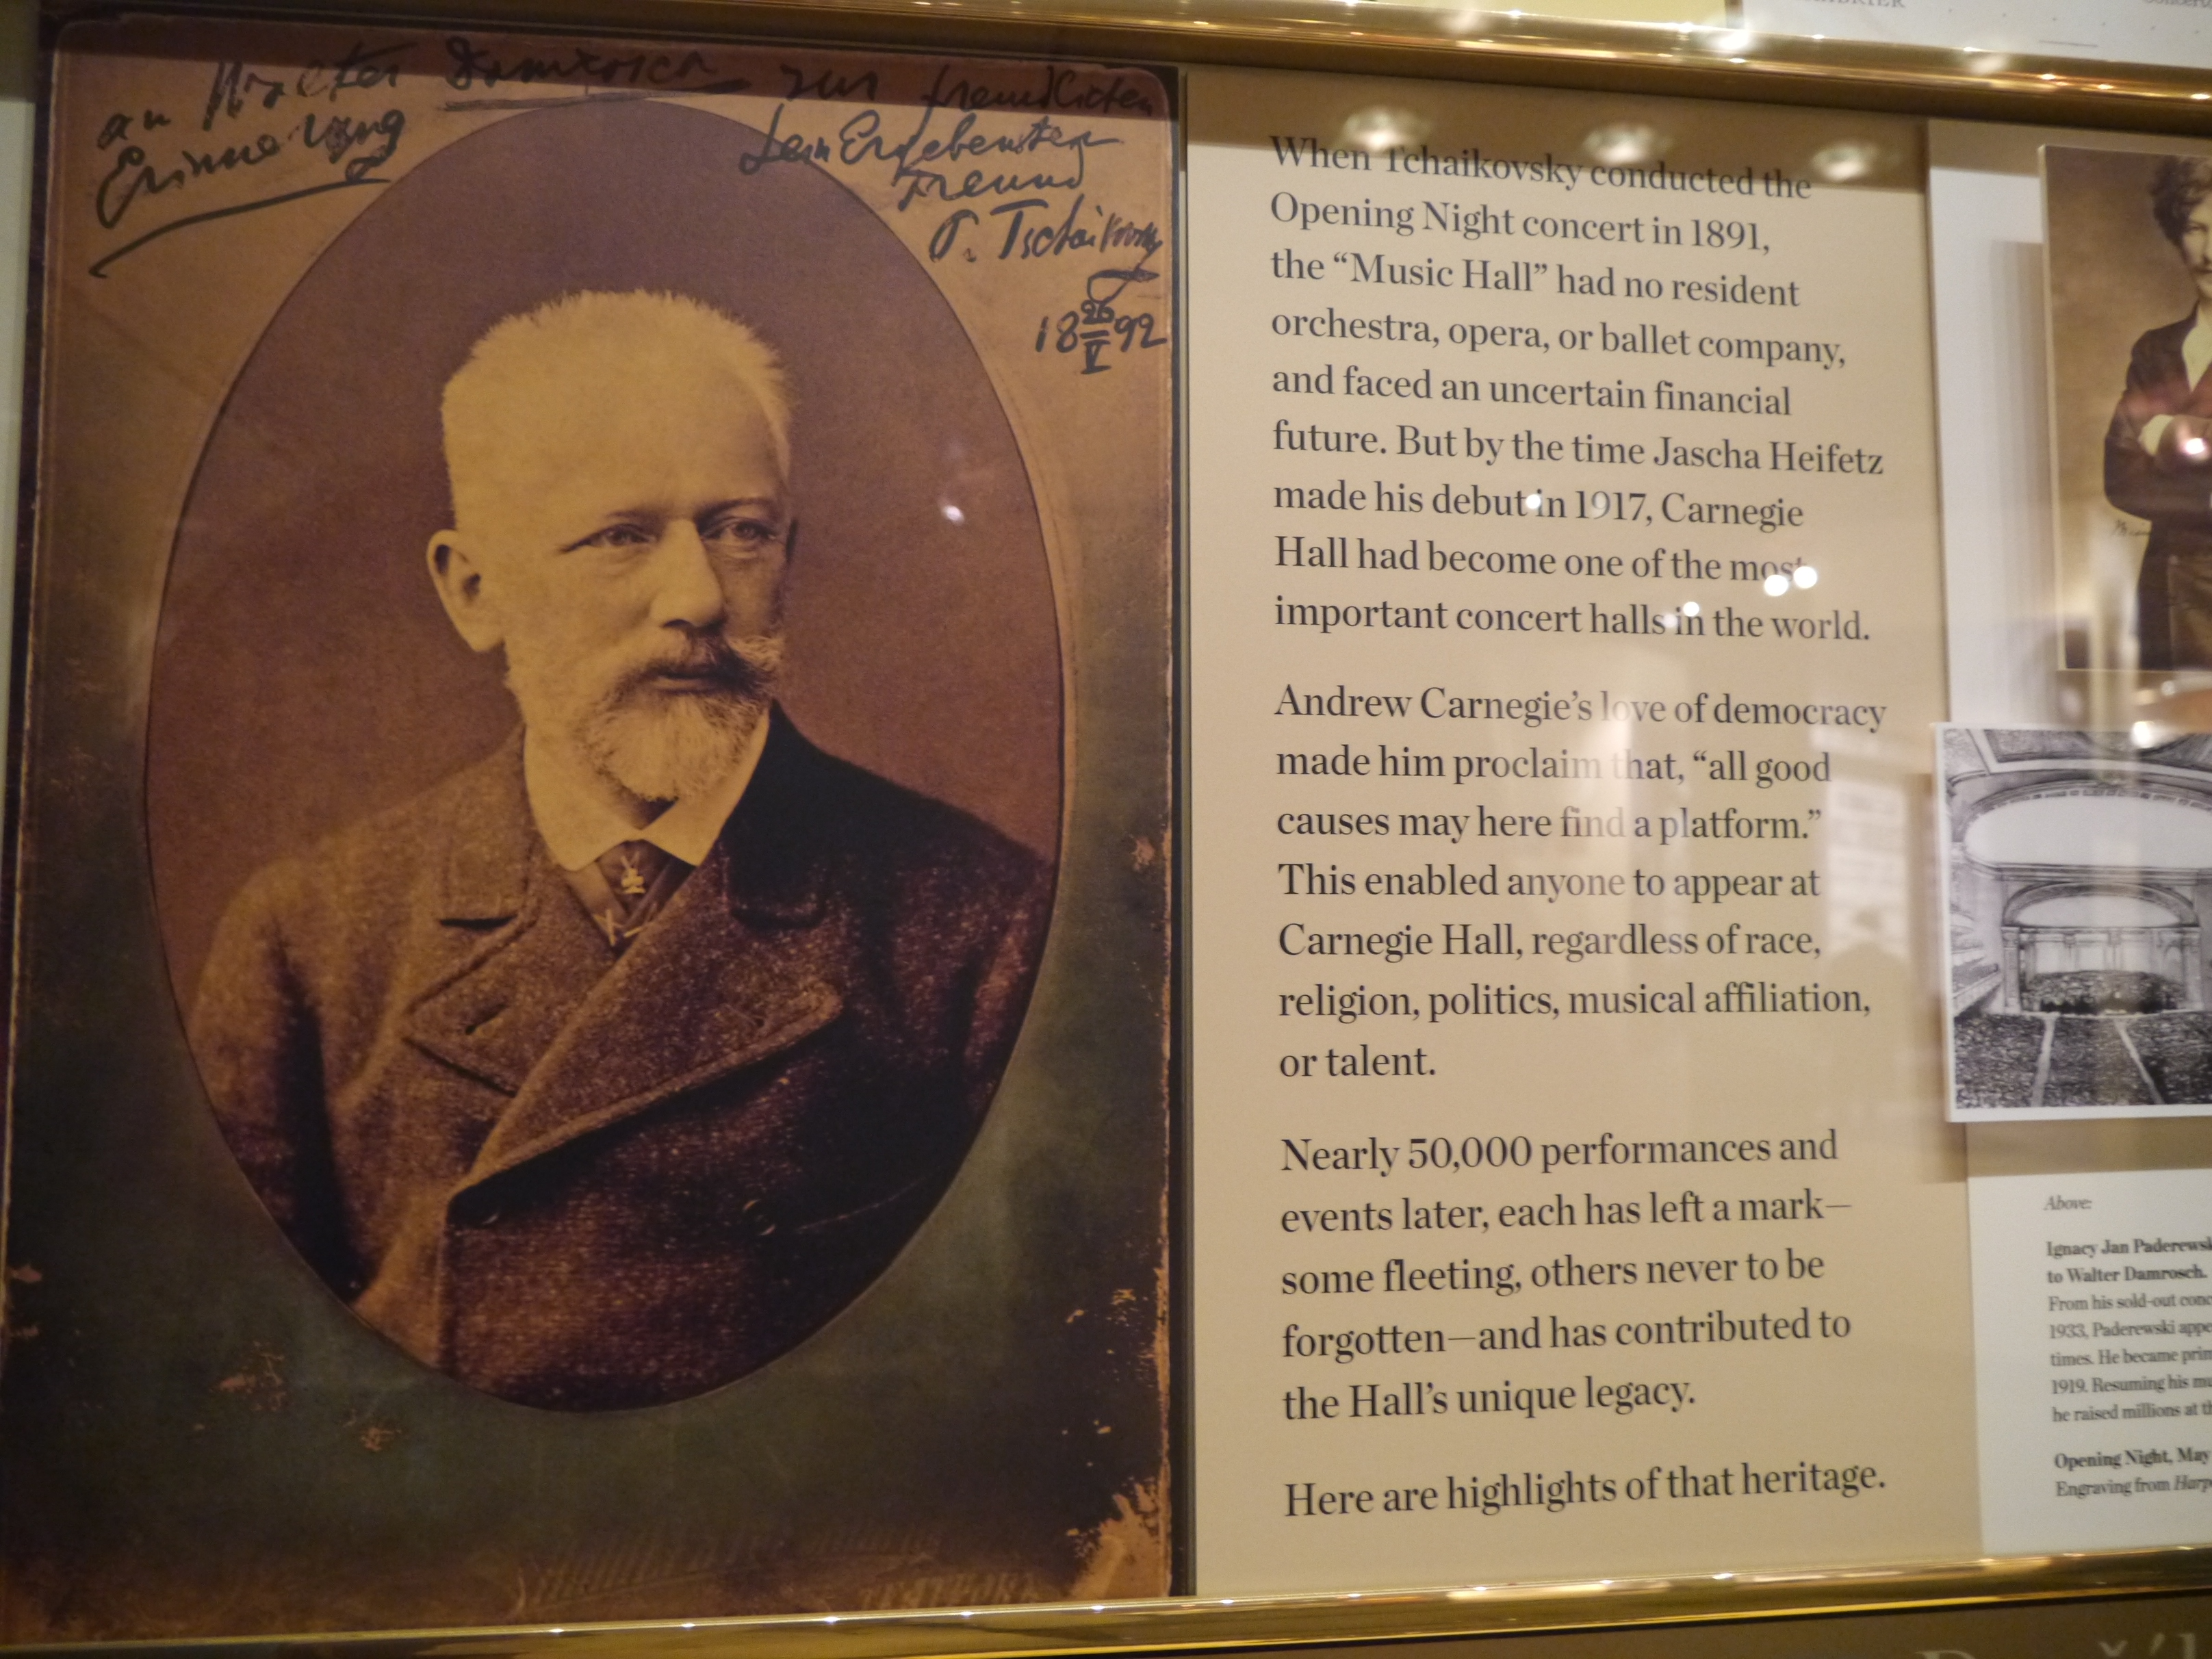 an Walter Damrosch zur freundlichen
Erinnerung
Sein Ergebenster
Freund
P. Tschaikovsky
18 26/V 92
When Tchaikovsky conducted the
Opening Night concert in 1891,
the “Music Hall” had no resident
orchestra, opera, or ballet company,
and faced an uncertain financial
future. But by the time Jascha Heifetz
made his debut in 1917, Carnegie
Hall had become one of the most
important concert halls in the world.
Andrew Carnegie’s love of democracy
made him proclaim that, “all good
causes may here find a platform.”
This enabled anyone to appear at
Carnegie Hall, regardless of race,
religion, politics, musical affiliation,
or talent.
Nearly 50,000 performances and
events later, each has left a mark—
some fleeting, others never to be
forgotten—and has contributed to
the Hall’s unique legacy.
Here are highlights of that heritage.
Above:
Ignacy Jan
to Walter Damrosch.
From his sold-out
1933, Paderewski
times. He became
1919. Resuming his
he raised millions at
Opening Night, May
Engraving from